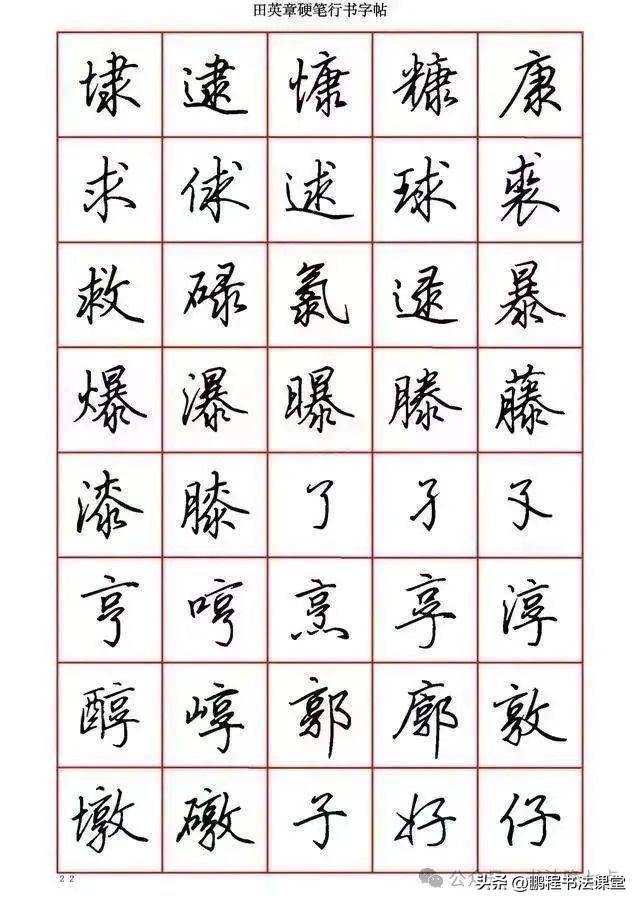 田英章硬笔行书字帖
埭逮慷糠康
求俅逑球裘
救碌氯逯暴
爆瀑曝滕藤
漆膝了孑孓
亨哼烹享淳
醇崞郭廓敦
墩礅子好仔
22
头条@鹏程书法课堂